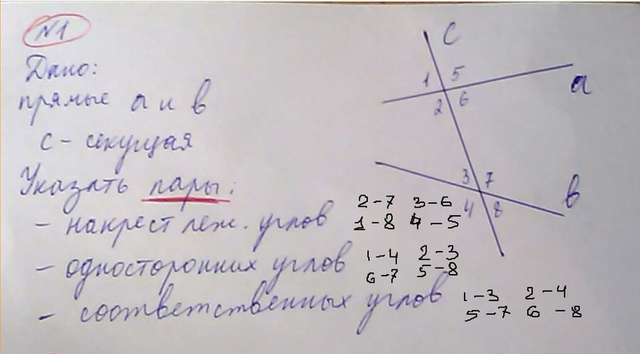 N1
Дано:
прямые а и в
с - секущая
Указать пары:
- накрест леж. углов 2-7 3-6
1-8 4-5
- односторонних углов 1-4 2-3
6-7 5-8
- соответственных углов 1-3 2-4
5-7 6-8
с
1 5
а
2 6
3 7
4 8
в